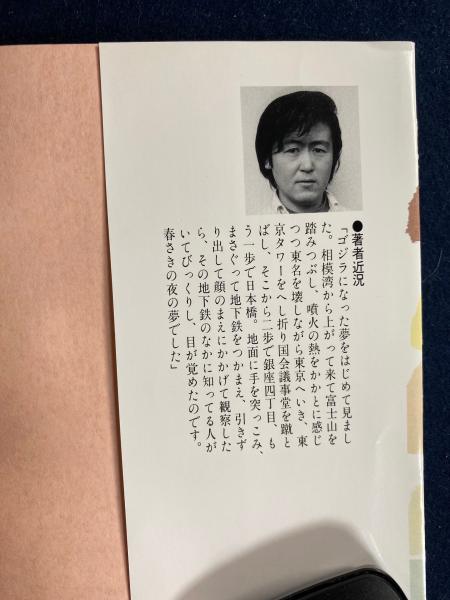 ●著者近況
「ゴジラになった夢をはじめて見まし
た。相模湾から上がって来て富士山を
踏みつぶし、噴火の熱をかかとに感じ
つつ東名を壊しながら東京へいき、東
京タワーをへし折り国会議事堂を蹴と
ばし、そこから二歩で銀座四丁目、も
う一歩で日本橋。地面に手を突っこみ、
まさぐって地下鉄をつかまえ、引きず
り出して顔のまえにかかげて観察した
ら、その地下鉄のなかに知ってる人が
いてびっくりし、目が覚めたのです。
春さきの夜の夢でした」